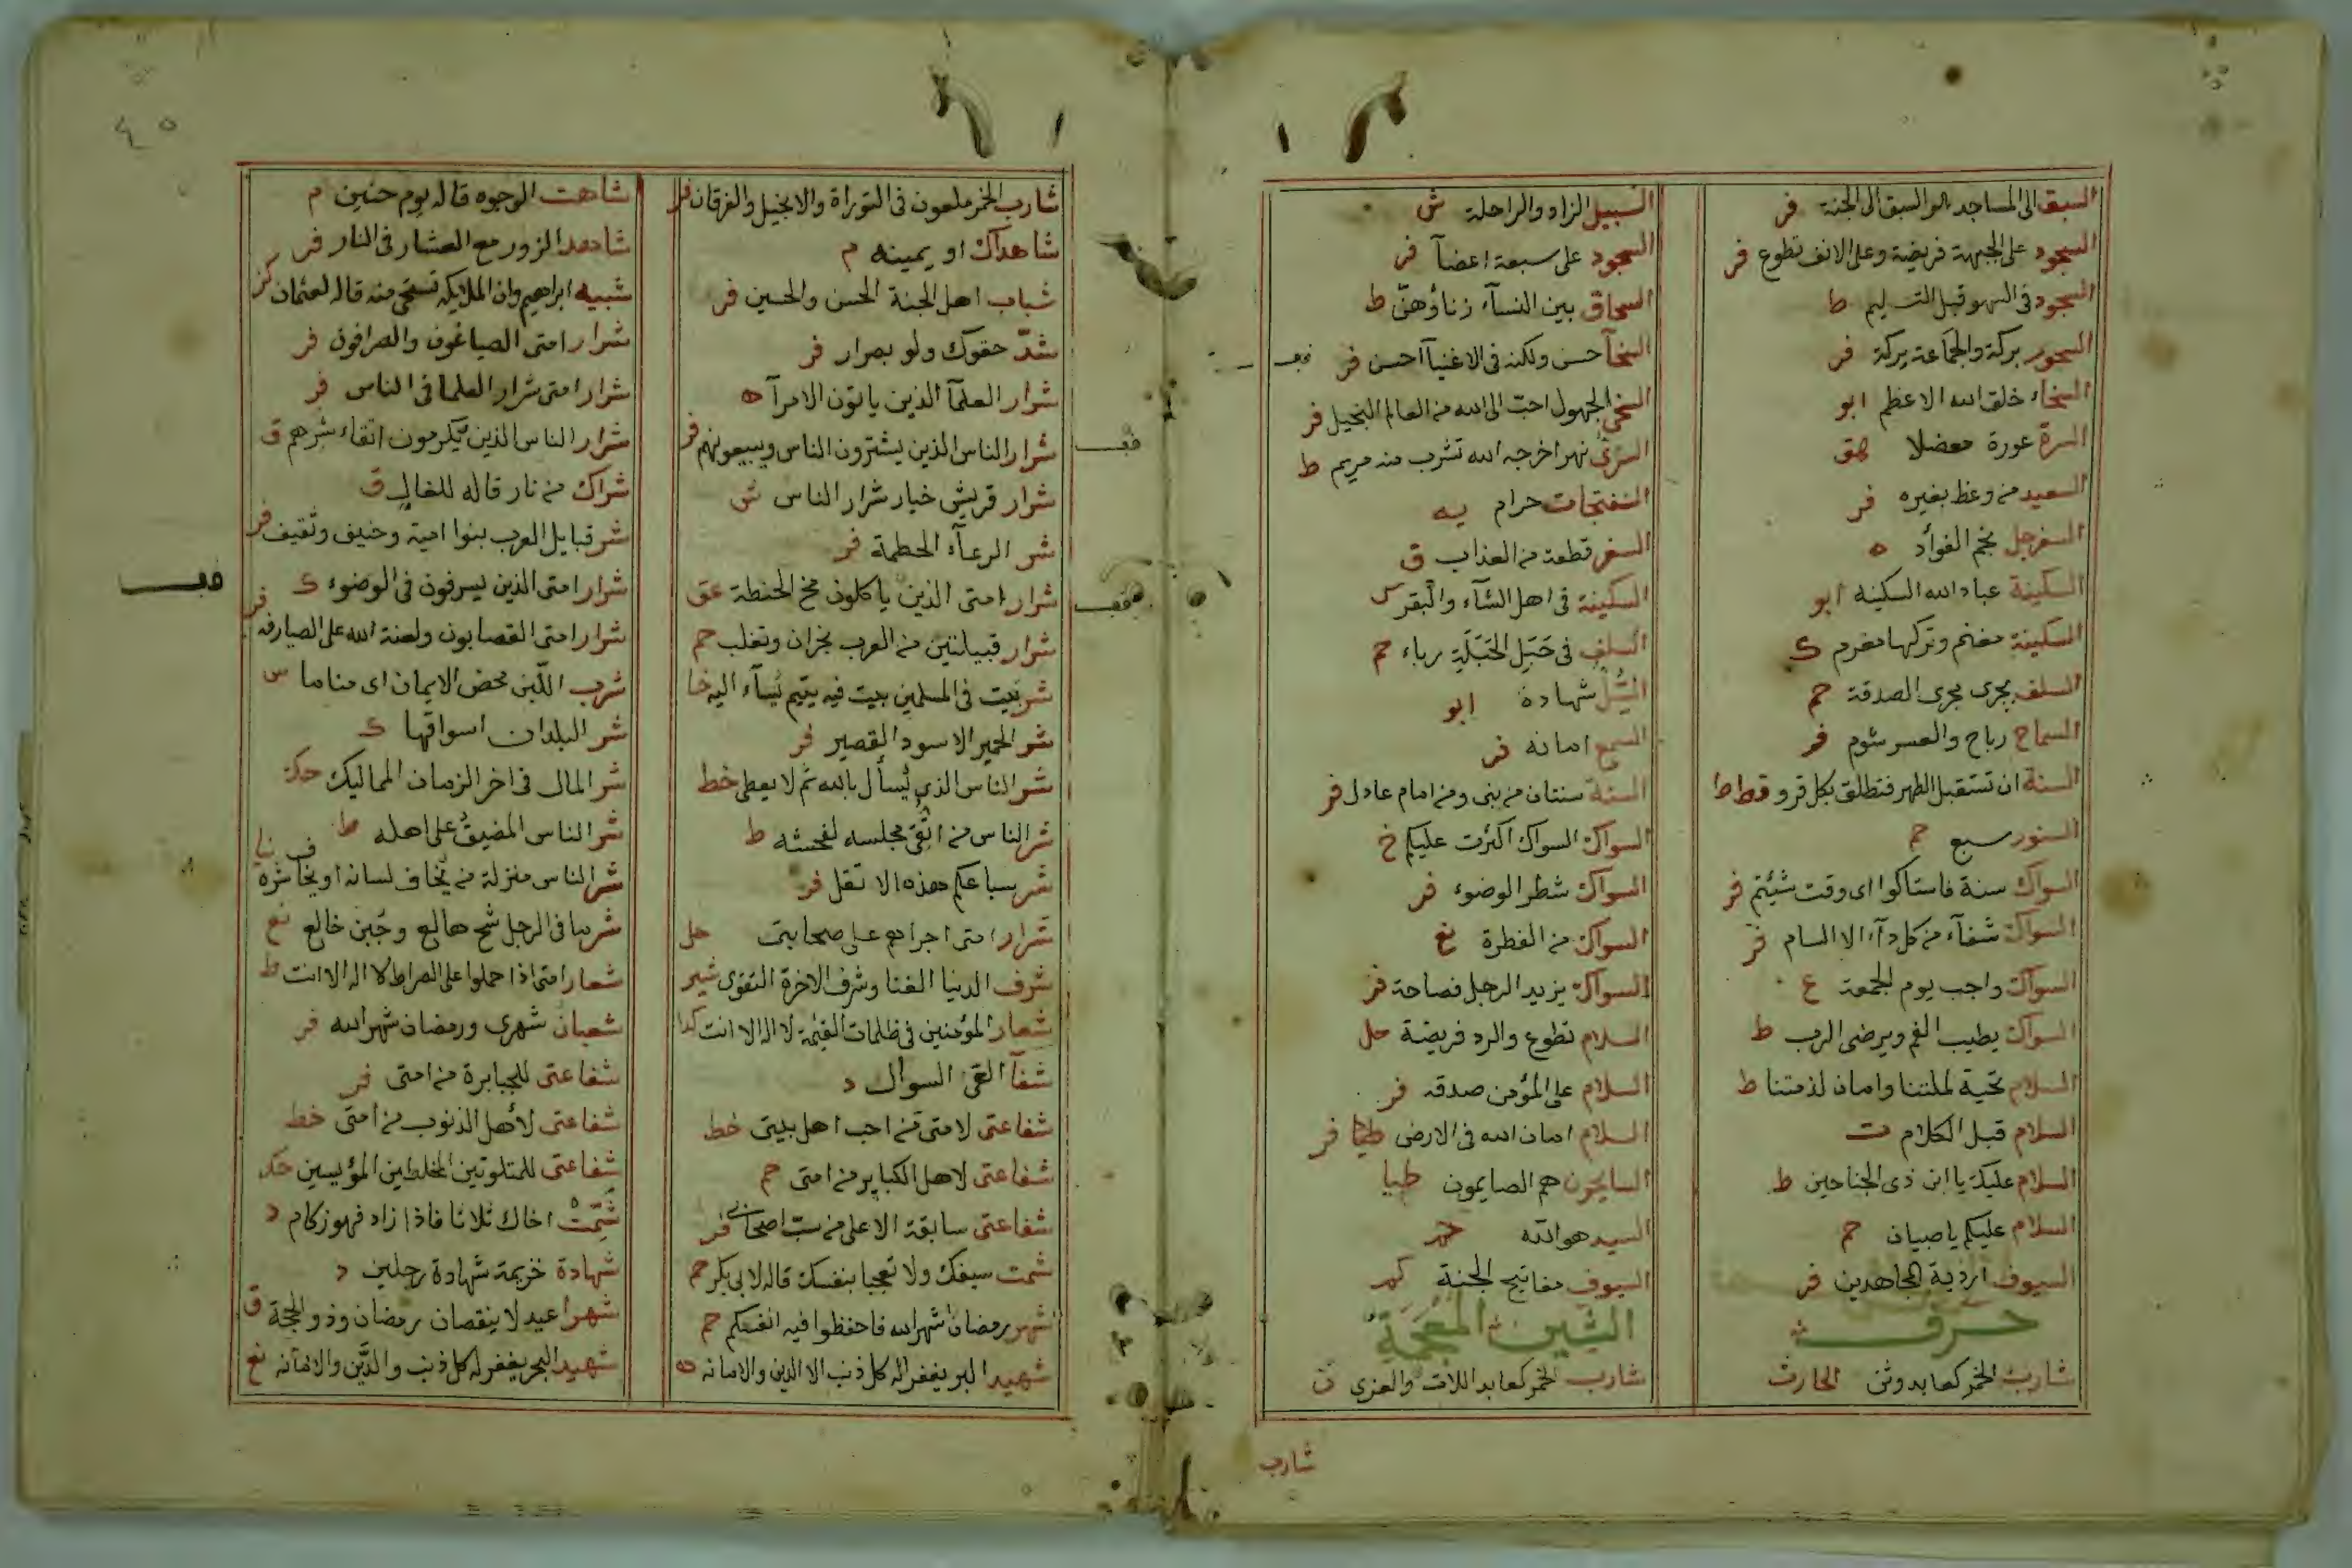 السبق الى المساجد هو السبق الى الجنة فر
السجود على الجبهة فريضة وعلى الانف تطوع فر
السجود فى السهو قبل التسليم ط
السحور بركة والجماعة بركة فر
السخاء خلق الله الاعظم ابو
السرة عورة هق
السعيد من وعظ بغيره فر
السفرجل يجم الفؤاد ه
السكينة عباد الله السكينه ابو
السكينة مغنم وتركها مغرم ك
السلف يجرى مجرى الصدقة حم
السماح رباح والعسر شوم فر
السنة ان تستقبل الطهر فتطلق بكل قرو قط ط
السنور سبع حم
السواك سنة فاستاكوا اى وقت شيئتم فر
السواك شفآء من كل دآء الا السام فر
السواك واجب يوم الجمعة ع
السواك يطيب الفم ويرضى الرب ط
السلام تحية لملتنا وامان لذمتنا ط
السلام قبل الكلام ت
السلام عليك يا ابن ذى الجناحين ط
السلام عليكم يا صبيان حم
السيوف اردية المجاهدين فر
حرف
شارب الخمر كعابد وثن الحارث
السبيل الزاد والراحلة ش
السجود على سبعة اعضآ فر
السحاق بين النسآء زناؤهن ط
السخآ حسن ولكنه فى الاغنيآ احسن فر
السخى الجهول احب الى الله من العالم البخيل فر
السرى نهر اخرجه الله تشرب منه مريم ط
السفتجات حرام يه
السفر قطعة من العذاب ق
السكينة فى اهل الشآء والبقر
السلف فى حَبَلِ الحَبَلَةِ رباء حم
السل شهادة ابو
السمع امانه فر
السنة سنتان من نبى ومن امام عادل فر
السواك السواك اكثرت عليكم خ
السواك شطر الوضوء فر
السواك من الفطرة نع
السواك يزيد الرجل فصاحة فر
السلام تطوع والرد فريضة حل
السلام على المؤمن صدقه فر
السلام امان الله فى الارض طيا فر
السايحون هم الصايمون طيا
السيد هو الله حم
السيوف مفاتيح الجنة كر
الشين المعجمة
شارب الخمر كعابد اللات والعزى ن
شارب
شارب الخمر ملعون فى التوراة والانجيل والفرقان فر
شاهداك او يمينه م
شباب اهل الجنة الحسن والحسين فر
شدّ حقوك ولو بصرار فر
شرار العلمآ الذين ياتون الامرآ ه
شرار الناس الذين يشترون الناس ويبيعونهم فر
شرار قريش خيار شرار الناس ش
شر الرعآء الحطمة فر
شرار امتى الذين ياكلون مخ الحنطة عق
شرار قبيلتين من العرب نجران وتغلب حم
شر بيت فى المسلمين بيت فيه يتيم يسآء اليه خا
شر الحمير الاسود القصير فر
شر الناس الذى يُسأل بالله ثم لا يعطى خط
شر الناس من اتقى مجلسه لفحشه ط
شر سباعكم هذه الا ثعل فر
شرار امتى اجرأهم على صحابتى حل
شرف الدنيا الغنا وشرف الاخرة التقوى شير
شعار المؤمنين فى ظلمات القيمة لا اله الا انت كدا
شفآ العى السوال د
شفاعتى لامتى من احب اهل بيتى خط
شفاعتى لاهل الكباير من امتى حم
شفاعتى سابقة الا على من سب اصحابى فر
شمت سيفك ولا تفجعنا بنفسك قاله لابى بكر حم
شهر رمضان شهر الله فاحفظوا فيه انفسكم حم
شهيد البر يغفر له كل ذنب الا الدين والامانه ه
شاهت الوجوه قاله يوم حنين م
شاهد الزور مع العشار فى النار فر
شبيه ابراهيم وان الملايكه تستحى منه قاله لعثمان كر
شرار امتى الصياغون والصرافون فر
شرار امتى شرار العلما فى الناس فر
شرار الناس الذين يكرمون اتقاء شرهم ق
شراك من نار قاله للغال ق
شر قبايل العرب بنوا امية وحنيف وثقيف فر
شرار امتى الذين يسرفون فى الوضوء ك
شرار امتى القصابون ولعنة الله على الصيارفه فر
شرب اللبن محض الايمان اى مناما س
شر البلدان اسواقها ك
شر المال فى اخر الزمان المماليك حك
شر الناس المضيق على اهله ط
شر الناس منزلة من يخاف لسانه او يخاف شره
شر ما فى الرجل شح هالع وجبن خالع نع
شعار امتى اذا حملوا على الصراط لا اله الا انت ط
شعبان شهرى ورمضان شهر الله فر
شفاعتى للجبابرة من امتى فر
شفاعتى لأهل الذنوب من امتى خط
شفاعتى للمتلوثين المخلطين المؤيسين حك
شَمِّتْ اخاك ثلاثا فاذا زاد فهو زكام د
شهادة خزيمة شهادة رجلين د
شهرا عيد لا ينقصان رمضان وذو الحجة ق
شهيد البحر يغفر له كل ذنب والدَّين والامانه نع